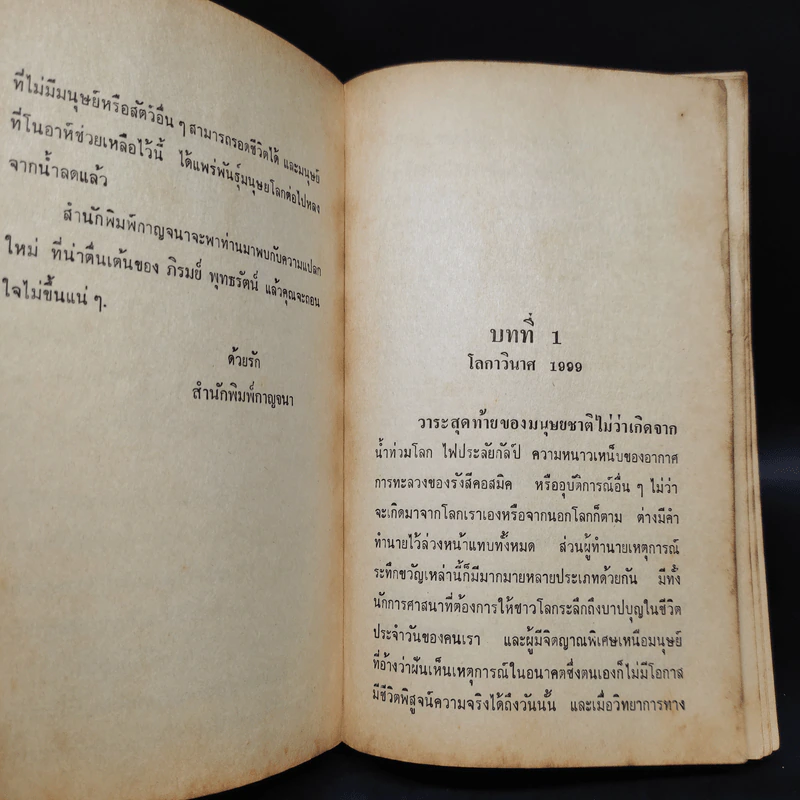 ที่ไม่มีมนุษย์หรือสัตว์อื่น ๆ สามารถรอดชีวิตได้ และมนุษย์
ที่โนอาห์ช่วยเหลือไว้นี้ ได้แพร่พันธุ์มนุษยโลกต่อไปหลัง
จากน้ำลดแล้ว
สำนักพิมพ์กาญจนาจะพาท่านมาพบกับความแปลก
ใหม่ ที่น่าตื่นเต้นของ ภิรมย์ พุทธรัตน์ แล้วคุณจะถอน
ใจไม่ขึ้นแน่ ๆ.
ด้วยรัก
สำนักพิมพ์กาญจนา
บทที่ 1
โลกาวินาศ 1999
วาระสุดท้ายของมนุษยชาติไม่ว่าเกิดจาก
น้ำท่วมโลก ไฟประลัยกัลป์ ความหนาวเหน็บของอากาศ
การทะลวงของรังสีคอสมิค หรืออุบัติการณ์อื่น ๆ ไม่ว่า
จะเกิดมาจากโลกเราเองหรือจากนอกโลกก็ตาม ต่างมีคำ
ทำนายไว้ล่วงหน้าแทบทั้งหมด ส่วนผู้ทำนายเหตุการณ์
ระทึกขวัญเหล่านี้ก็มีมากมายหลายประเภทด้วยกัน มีทั้ง
นักการศาสนาที่ต้องการให้ชาวโลกระลึกถึงบาปบุญในชีวิต
ประจำวันของคนเรา และผู้มีจิตญาณพิเศษเหนือมนุษย์
ที่อ้างว่าฝันเห็นเหตุการณ์ในอนาคตซึ่งตนเองก็ไม่มีโอกาส
มีชีวิตพิสูจน์ความจริงได้ถึงวันนั้น และเมื่อวิทยาการทาง